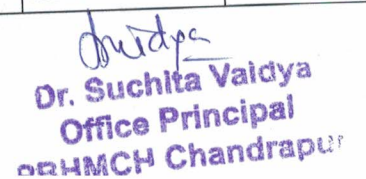 Dr. Suchita Vaidya
Office Principal
Chandrapur